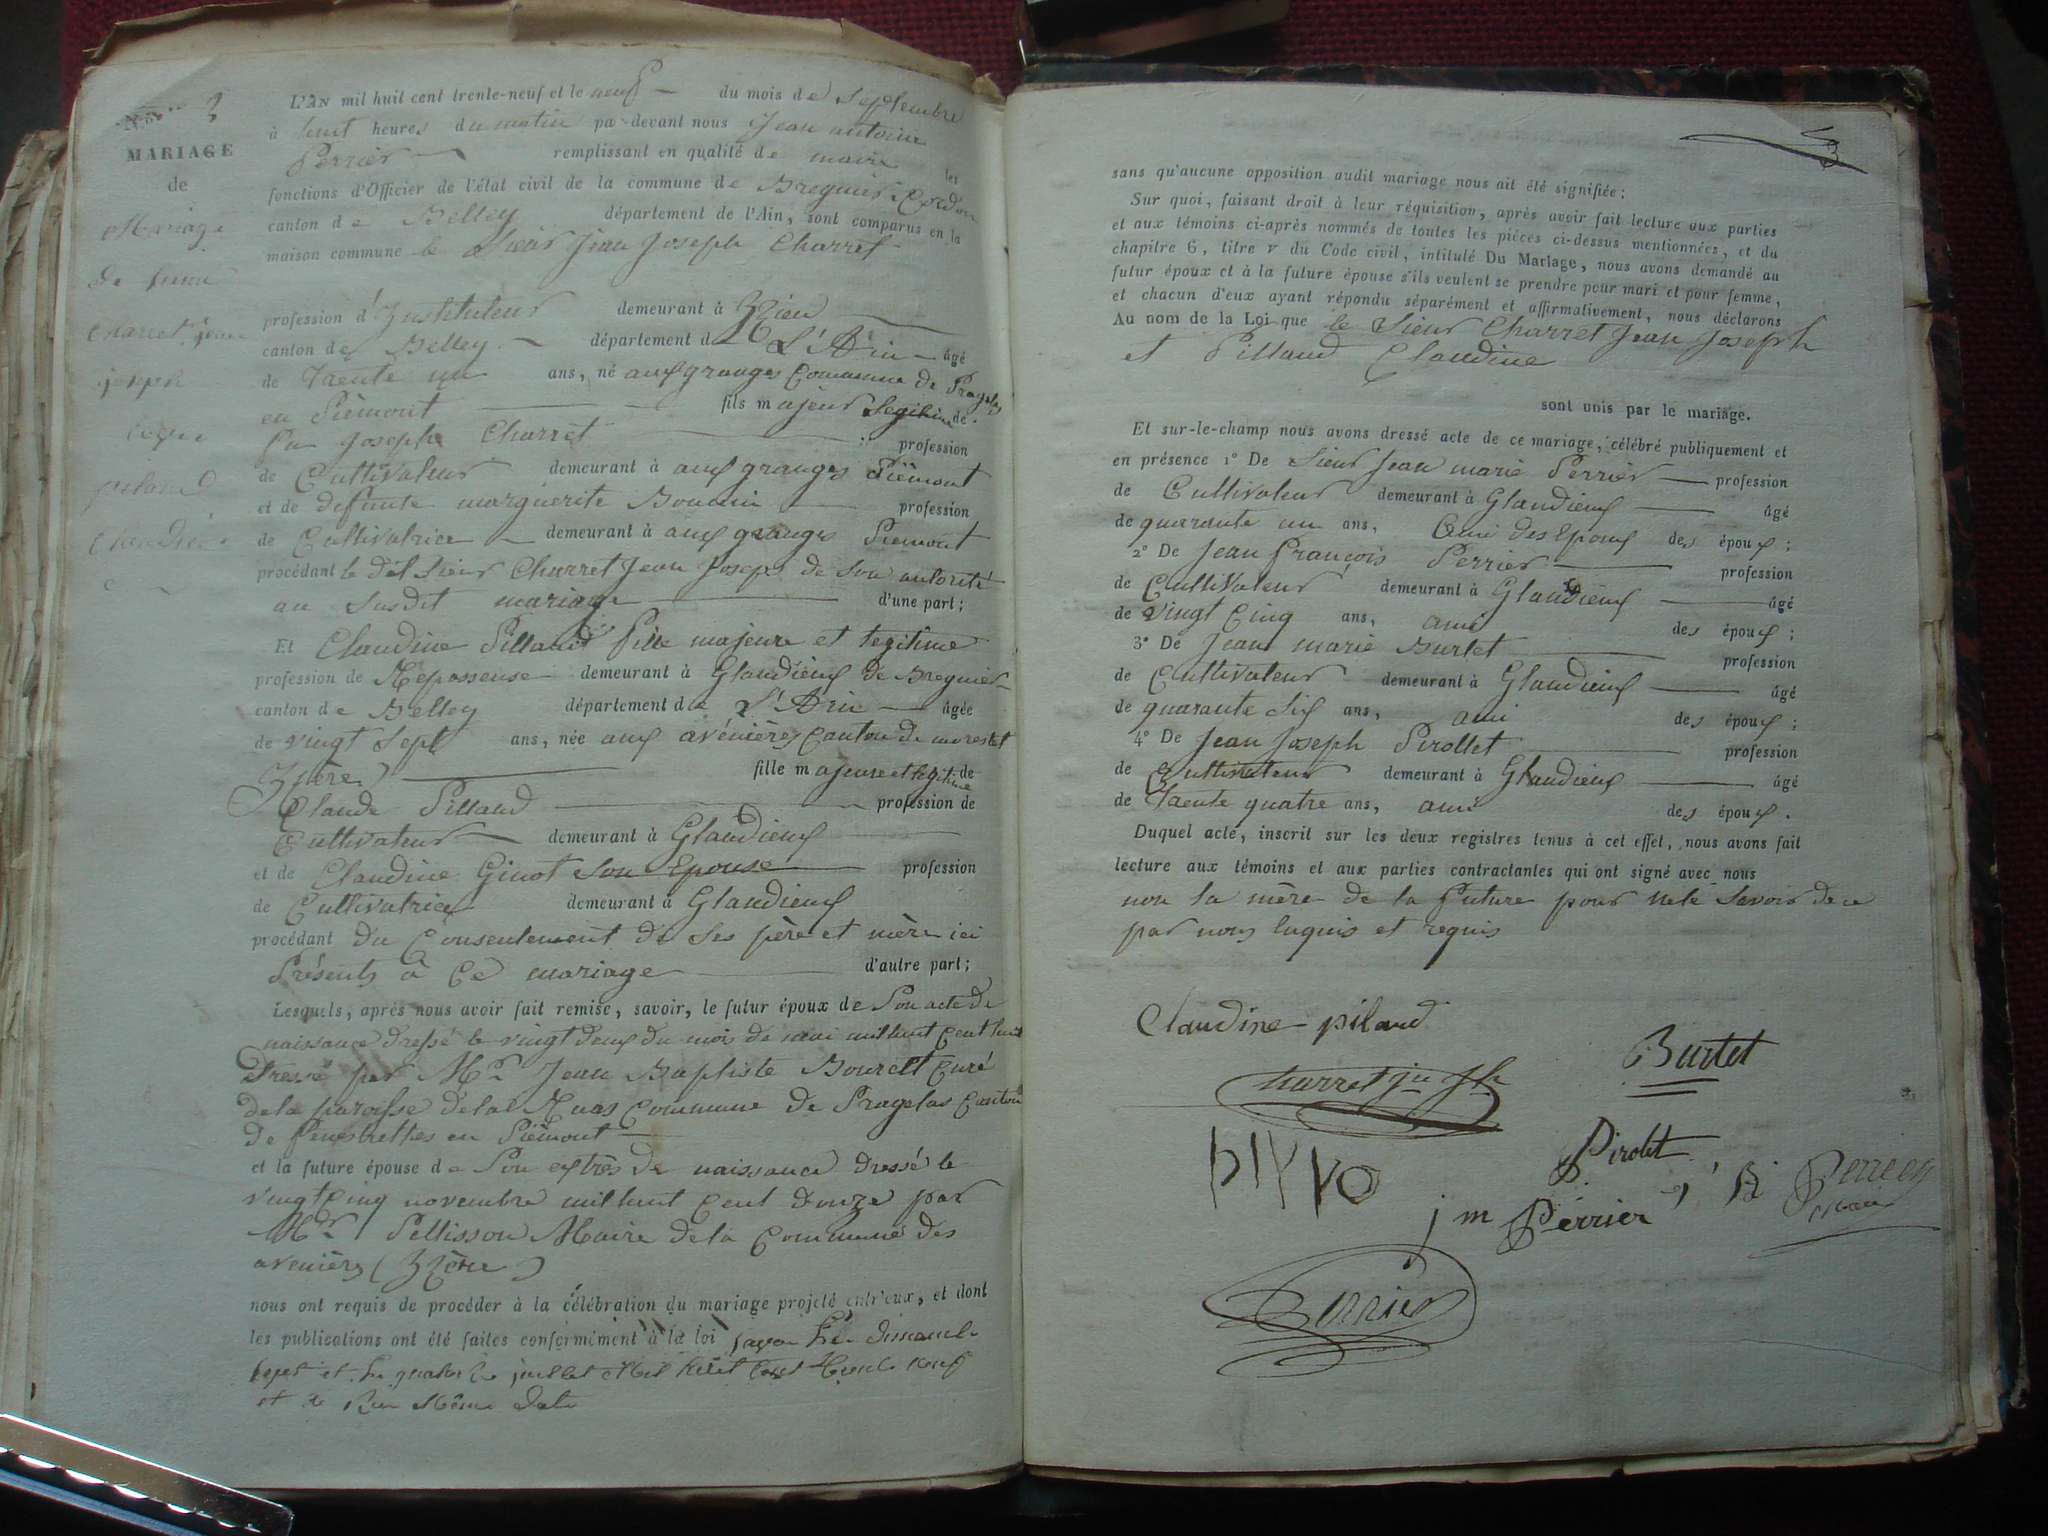 MARIAGE
de
Mariage
Charret jean
joseph
piland
Claudine
L'AN mil huit cent trente-neuf et le neuf du mois de Septembre
à huit heures du matin par-devant nous Jean antoine
Perrier remplissant en qualité de maire les
fonctions d'Officier de l'état civil de la commune de Bregnier Cordon
canton de Belley département de l'Ain, sont comparus en la
maison commune le Sieur Jean Joseph Charret
profession d'Instituteur demeurant à Izieu
canton de Belley département de L'Ain âgé
de Trente un ans, né aux granges Commune de Pragelas
en Piémont fils majeur Legitime de
Joseph Charret profession
de Cultivateur demeurant à aux granges Piémont
et de defunte marguerite profession
de Cultivatrice demeurant à aux granges Piemont
procédant le dit Sieur Charret Jean Joseph de son autorité
au susdit mariage d'une part;
Et Claudine Pillaud fille majeure et legitime
profession de Repasseuse demeurant à Glandieux de Bregnier
canton de Belley département de L'Ain âgée
de vingt Sept ans, née aux avénières Canton de morestel
Izère fille majeure et legitime de
Claude Pillaud profession de
Cultivateur demeurant à Glandieux
et de Claudine Ginot son Epouse profession
de Cultivatrice demeurant à Glandieux
procédant Du Consentement de Ses père et mère ici
Présents à Ce mariage d'autre part;
Lesquels, après nous avoir fait remise, savoir, le futur époux de Son acte de
naissance dressé le vingt deux du mois de mai mil huit Cent huit
Dressé par Mr Jean Baptiste Bourcet Curé
de la paroisse de la Ruas Commune de Pragelas Canton
de fenestrelles en Piémont
et la future épouse de Son extrès de naissance dressé le
vingt Cinq novembre mil huit Cent douze par
Mr Pellisson Maire de la Commune des
avenières (Izère)
nous ont requis de procéder à la célébration du mariage projeté entr'eux, et dont
les publications ont été faites conformément à la loi savoir les dimanche
sept et le quatorze juillet Mil huit Cent trente neuf
et Même date
sans qu'aucune opposition audit mariage nous ait été signifiée;
Sur quoi, faisant droit à leur réquisition, après avoir fait lecture aux parties
et aux témoins ci-après nommés de toutes les pièces ci-dessus mentionnées, et du
chapitre 6, titre V du Code civil, intitulé Du Mariage, nous avons demandé au
futur époux et à la future épouse s'ils veulent se prendre pour mari et pour femme,
et chacun d'eux ayant répondu séparément et affirmativement, nous déclarons
Au nom de la Loi que le Sieur Charret Jean Joseph
et Pillaud Claudine
sont unis par le mariage.
Et sur-le-champ nous avons dressé acte de ce mariage, célébré publiquement et
en présence 1° De Sieur Jean marie Perrier profession
de Cultivateur demeurant à Glandieux âgé
de quarante un ans, Ami des Epoux des époux;
2° De Jean François Perrier profession
de Cultivateur demeurant à Glandieux âgé
de vingt Cinq ans, ami des époux;
3° De Jean marie Burtet profession
de Cultivateur demeurant à Glandieux âgé
de quarante Six ans, ami des époux;
4° De Jean Joseph Pirollet profession
de Cultivateur demeurant à Glandieux âgé
de Trente quatre ans, ami des époux.
Duquel acte, inscrit sur les deux registres tenus à cet effet, nous avons fait
lecture aux témoins et aux parties contractantes qui ont signé avec nous
non la mère de la future pour ne le Savoir de ce
par nous Enquis et requis
Claudine pilaud
Burtet
Charret jn Jh
Pirolet
j m Perrier
Perrier
maire
Perrier